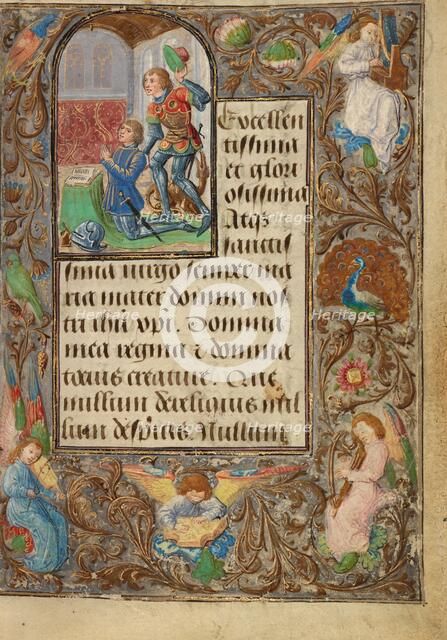 Excellen
tissima
et glori
osissima
atqz
sanctis
sima uirgo semper ma
ria mater domini nos
tri ihu xpi. Domina
mea regina et domina
totius creature. Que
nullum derelinquis nul
lum despicis Nullum
Heritage
Heritage
Heritage
Heritage
Heritage